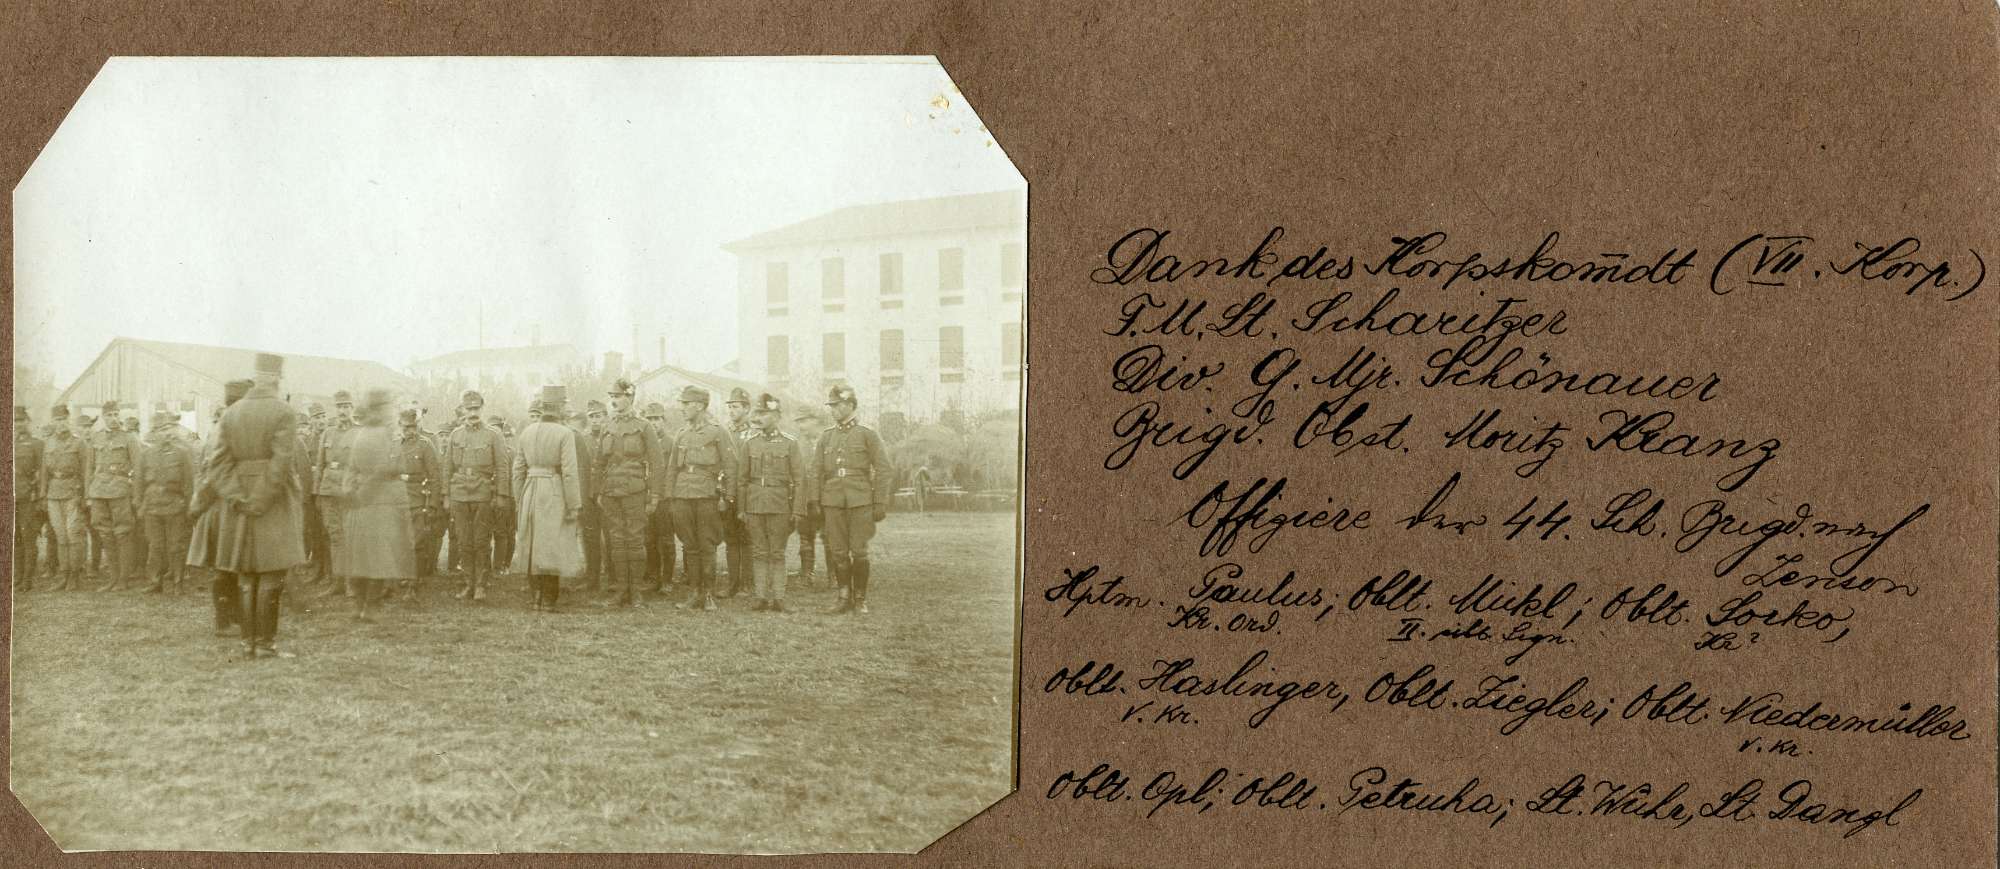 Dank des Korpskom̅dt (VII. Korp.)
F.M.Lt. Scharitzer
Div. G. Mjr. Schönauer
Brigd. Obst. Moritz Kranz
Offiziere der 44. Sch. Brigd. nach
Zenson
Hptm. Paulus; Oblt. Mickl; Oblt. Sorko,
Kr. Ord. II. silb. Sign. Kr?
Oblt. Haslinger, Oblt. Ziegler; Oblt. Niedermüller
V. Kr. V. Kr.
Oblt. Opl; Oblt. Petruha; Lt. Wuhr, Lt Dangl